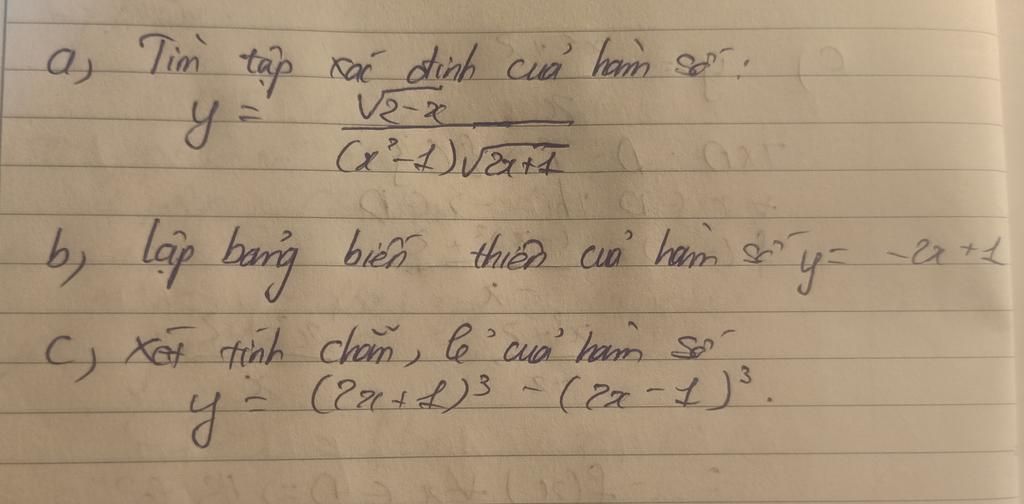 a, Tìm tập xác định của hàm số:
y = √(2-x) / ((x²-1)√(2x+1))
b, lập bảng biến thiên của hàm số y = -2x+1
c, Xét tính chẵn, lẻ của hàm số
y = (2x+1)³ - (2x-1)³.